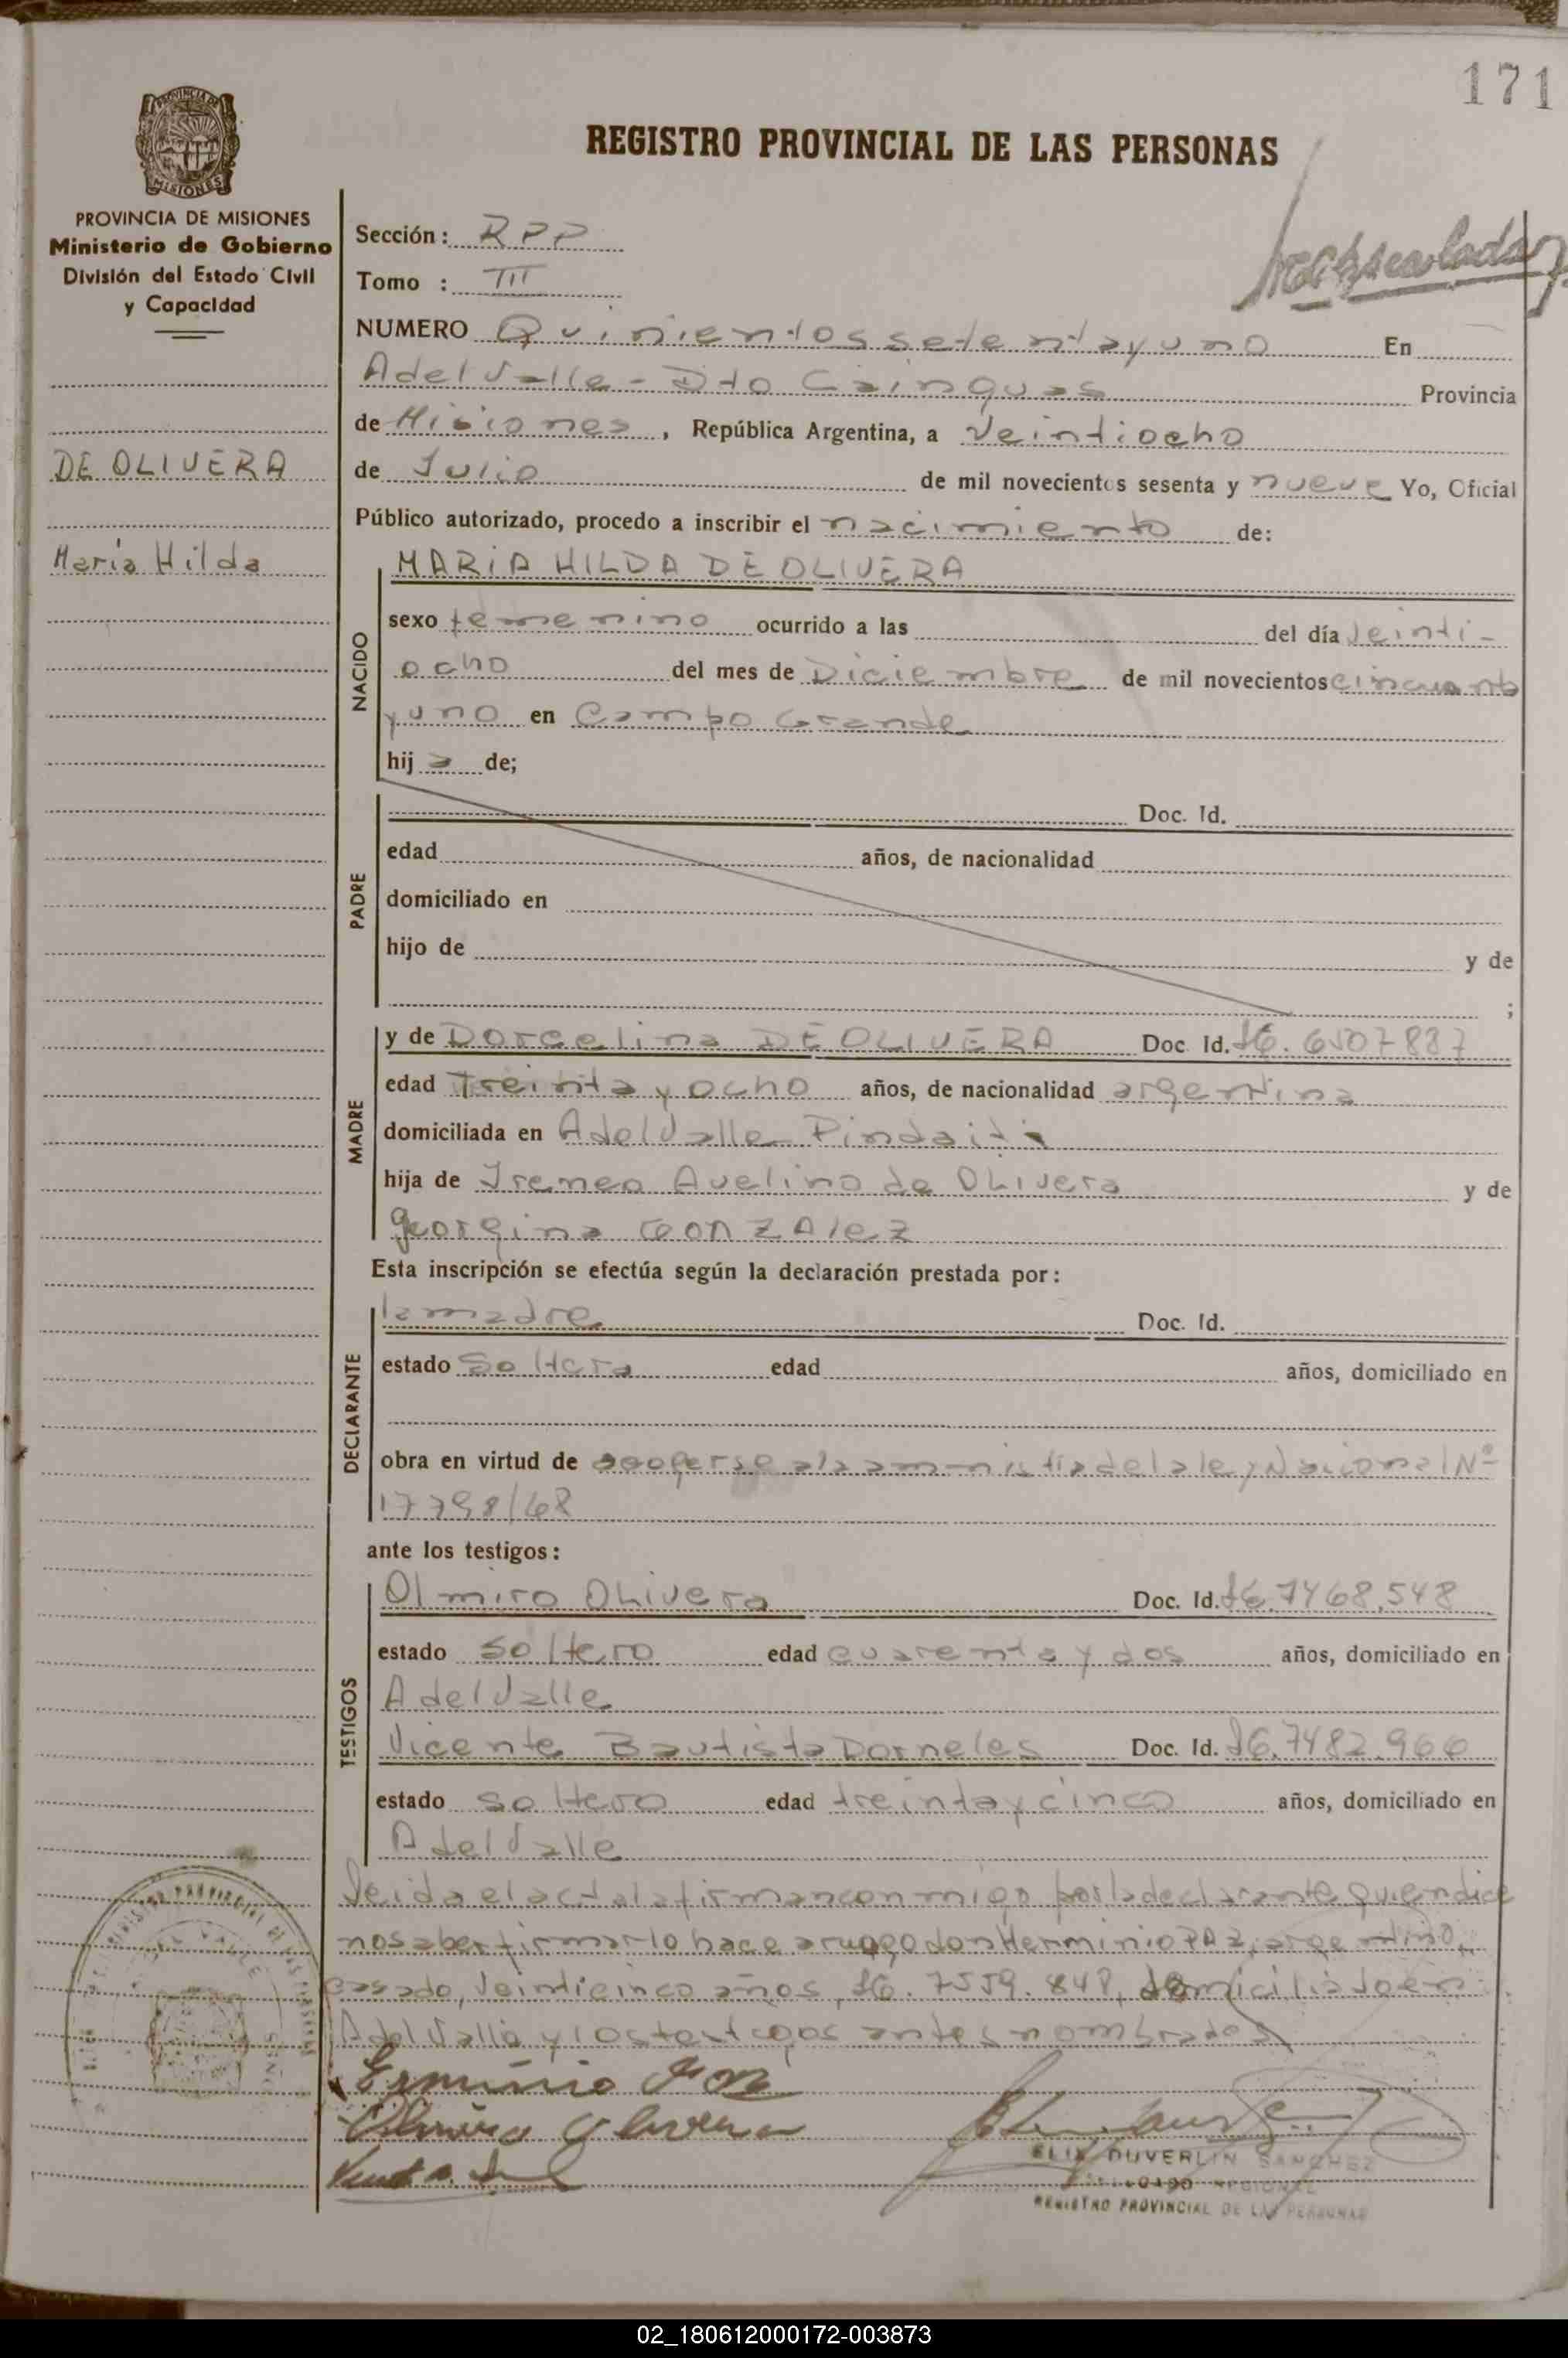 171
REGISTRO PROVINCIAL DE LAS PERSONAS
PROVINCIA DE MISIONES
Ministerio de Gobierno
División del Estado Civil
y Capacidad
DE OLIVERA
María Hilda
Sección: RPP
Tomo : III
NUMERO Quinientos setenta y uno En
Adel Valle - Dto Cainguas Provincia
de Misiones, República Argentina, a Veintiocho
de Julio de mil novecientos sesenta y nueve Yo, Oficial
Público autorizado, procedo a inscribir el nacimiento de:
NACIDO
MARIA HILDA DE OLIVERA
sexo femenino ocurrido a las del día Veinti-
ocho del mes de Diciembre de mil novecientos cincuenta
y uno en Campo Grande
hij a de;
PADRE
Doc. Id.
edad años, de nacionalidad
domiciliado en
hijo de y de
;
MADRE
y de Dorcelina DE OLIVERA Doc. Id. 6.507887
edad Treinta y ocho años, de nacionalidad argentina
domiciliada en Adel Valle Pindaiti
hija de Ireneo Avelino de Olivera y de
Georgina GONZALEZ
Esta inscripción se efectúa según la declaración prestada por:
DECLARANTE
la madre Doc. Id.
estado Soltera edad años, domiciliado en
obra en virtud de acogerse a la amnistia de la ley Nacional Nº
17798/68
ante los testigos:
TESTIGOS
Olmiro Olivera Doc. Id. 7468.548
estado soltero edad cuarenta y dos años, domiciliado en
Adel Valle
Vicente Bautista Dorneles Doc. Id. 7482.966
estado soltero edad treinta y cinco años, domiciliado en
Adel Valle
leida el acta la firman conmigo por la declarante quien dice
no saber firmar lo hace a ruego don Herminio PAZ, argentino,
casado, Veinticinco años, 7559.848, domiciliado en
Adel Valle y los testigos antes nombrados
Erminio Paz
Olmiro Olivera
ELIX DUVERLIN SANCHEZ
REGIONAL
REGISTRO PROVINCIAL DE LAS PERSONAS
02_180612000172-003873